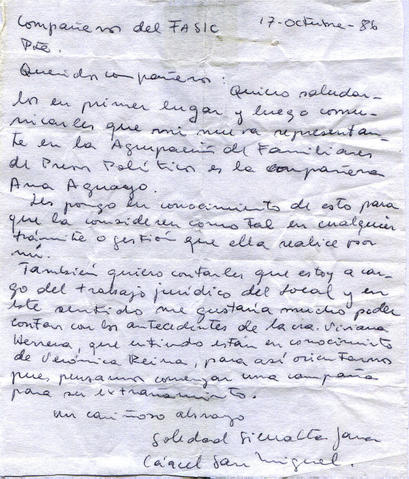 Compañeros del FASIC 17-octubre-86
Pte.
Queridos compañeros:
Quiero saludar-
los en primer lugar y luego comu-
nicarles que mi nueva representan-
te en la Agrupación de Familiares
de Preso Político es la compañera
Ana Aguayo.
Les pongo en conocimiento de esto para
que la consideren como tal en cualquier
trámite o gestión que ella realice por
mi.
También quiero contarles que estoy a car-
go del trabajo jurídico del local y en
este sentido me gustaría mucho poder
contar con los antecedentes de la cra. Viviana
que entiendo están en conocimiento
de Verónica Reina, para así orientarnos
pues pensamos comenzar una campaña
para su extrañamiento.
un cariñoso abrazo
Soledad Jara
Cárcel San Miguel.